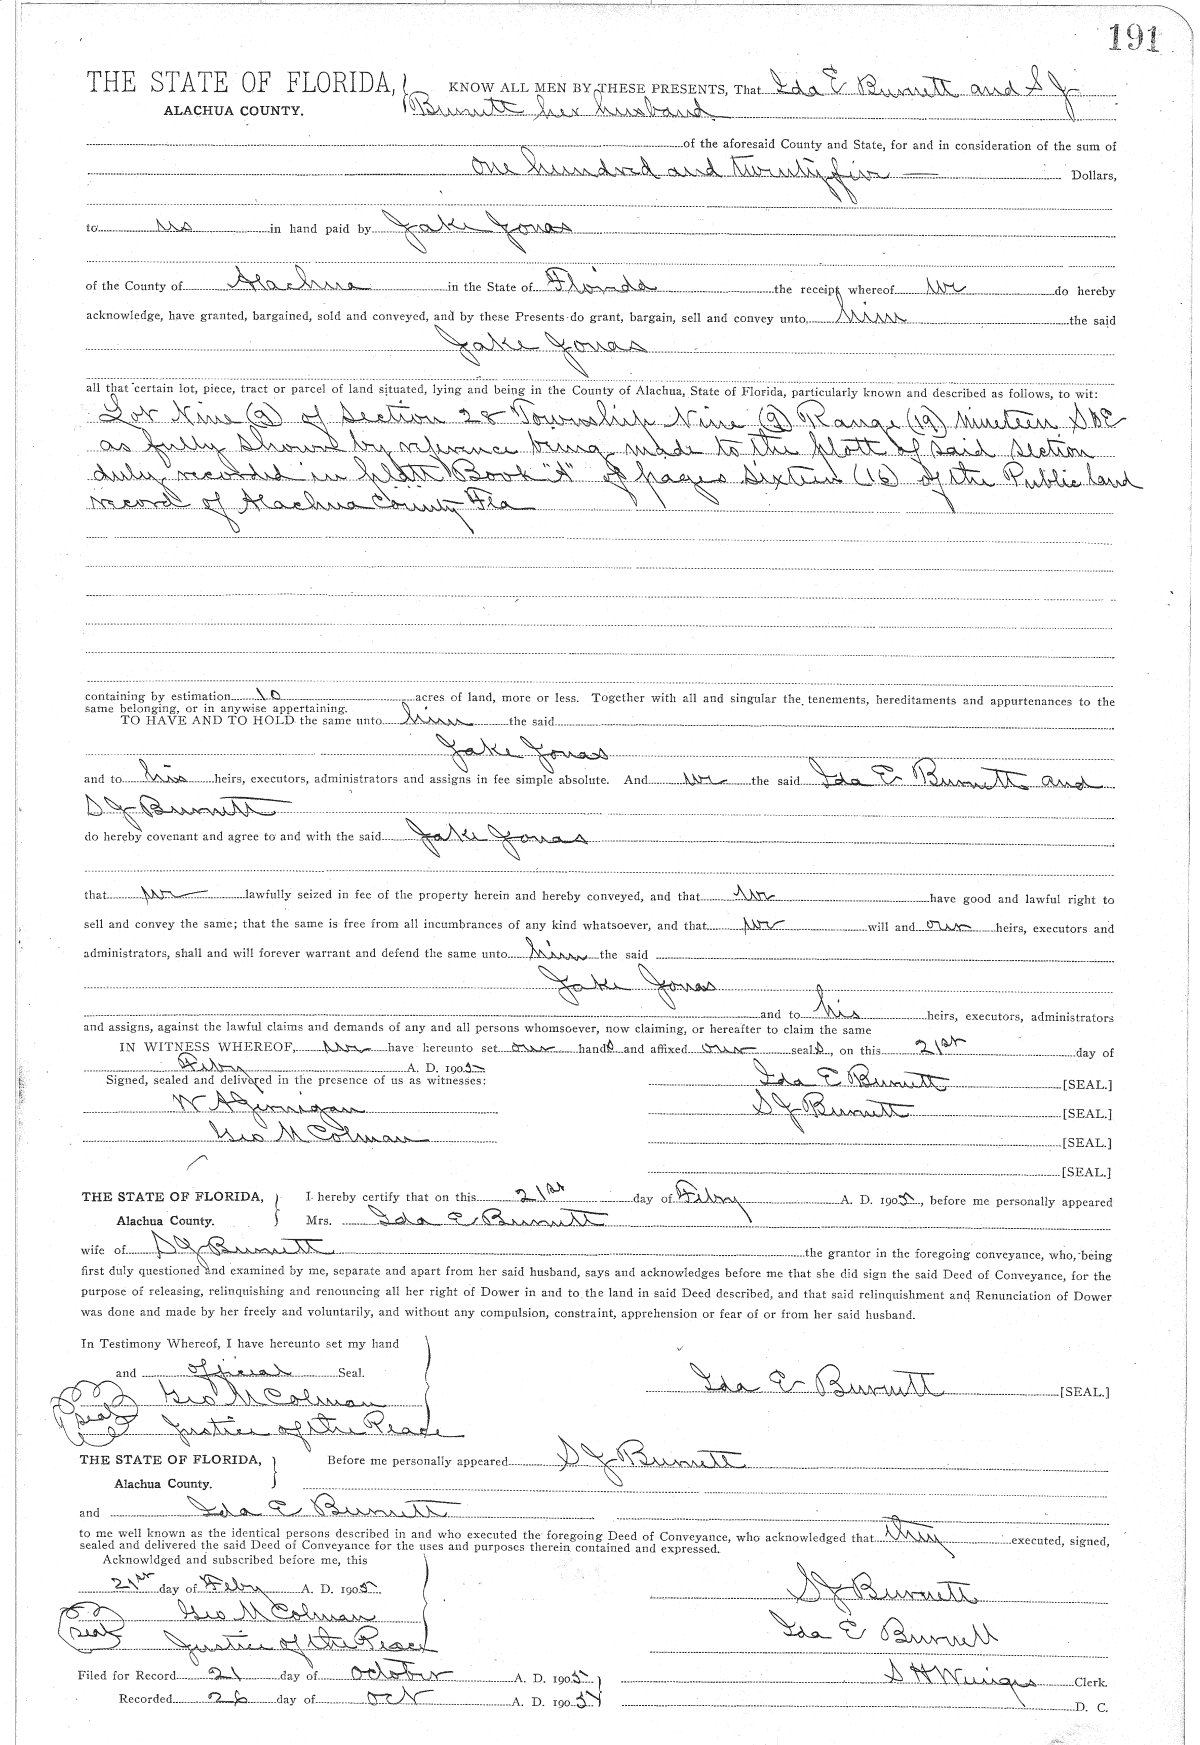 191
THE STATE OF FLORIDA, KNOW ALL MEN BY THESE PRESENTS, That Ida E Burnett and S J
ALACHUA COUNTY. Burnett her husband
of the aforesaid County and State, for and in consideration of the sum of
one hundred and twenty five — Dollars,
to us in hand paid by Jake Jonas
of the County of Alachua in the State of Florida the receipt whereof we do hereby
acknowledge, have granted, bargained, sold and conveyed, and by these Presents do grant, bargain, sell and convey unto him the said
Jake Jonas
all that certain lot, piece, tract or parcel of land situated, lying and being in the County of Alachua, State of Florida, particularly known and described as follows, to wit:
Lot Nine (9) of Section 28 Township Nine (9) Range (19) Nineteen S & E
as fully shown by reference being made to the plott of said section
duly recorded in platt Book "A" of pages sixteen (16) of the Public land
record of Alachua County Fla
containing by estimation 10 acres of land, more or less. Together with all and singular the tenements, hereditaments and appurtenances to the
same belonging, or in anywise appertaining.
TO HAVE AND TO HOLD the same unto him the said
Jake Jonas
and to his heirs, executors, administrators and assigns in fee simple absolute. And we the said Ida E Burnett and
S J Burnett
do hereby covenant and agree to and with the said Jake Jonas
that we lawfully seized in fee of the property herein and hereby conveyed, and that we have good and lawful right to
sell and convey the same; that the same is free from all incumbrances of any kind whatsoever, and that we will and our heirs, executors and
administrators, shall and will forever warrant and defend the same unto him the said
Jake Jonas
and to his heirs, executors, administrators
and assigns, against the lawful claims and demands of any and all persons whomsoever, now claiming, or hereafter to claim the same
IN WITNESS WHEREOF, we have hereunto set our hands and affixed our seals, on this 21st day of
Feby A. D. 1905
Signed, sealed and delivered in the presence of us as witnesses: Ida E Burnett [SEAL.]
W A Jernigan S J Burnett [SEAL.]
Geo M Colman [SEAL.]
[SEAL.]
THE STATE OF FLORIDA, I hereby certify that on this 21st day of Feby A. D. 1905, before me personally appeared
Alachua County. Mrs. Ida E Burnett
wife of S J Burnett the grantor in the foregoing conveyance, who, being
first duly questioned and examined by me, separate and apart from her said husband, says and acknowledges before me that she did sign the said Deed of Conveyance, for the
purpose of releasing, relinquishing and renouncing all her right of Dower in and to the land in said Deed described, and that said relinquishment and Renunciation of Dower
was done and made by her freely and voluntarily, and without any compulsion, constraint, apprehension or fear of or from her said husband.
In Testimony Whereof, I have hereunto set my hand
and official Seal. Ida E Burnett [SEAL.]
Geo M Colman
Seal Justice of the Peace
THE STATE OF FLORIDA, Before me personally appeared S J Burnett
Alachua County.
and Ida E Burnett
to me well known as the identical persons described in and who executed the foregoing Deed of Conveyance, who acknowledged that they executed, signed,
sealed and delivered the said Deed of Conveyance for the uses and purposes therein contained and expressed.
Acknowldged and subscribed before me, this
21st day of Feby A. D. 1905 S J Burnett
Geo M Colman
Seal Justice of the Peace Ida E Burnett
Filed for Record 21 day of October A. D. 1905 S H Wienges Clerk.
Recorded 26 day of Oct A. D. 1905 D. C.